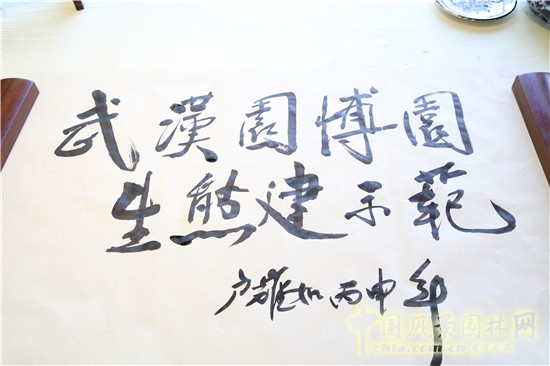 武漢園博園
生態建示範
丙申年
中国风景园林网
chla.com.cn